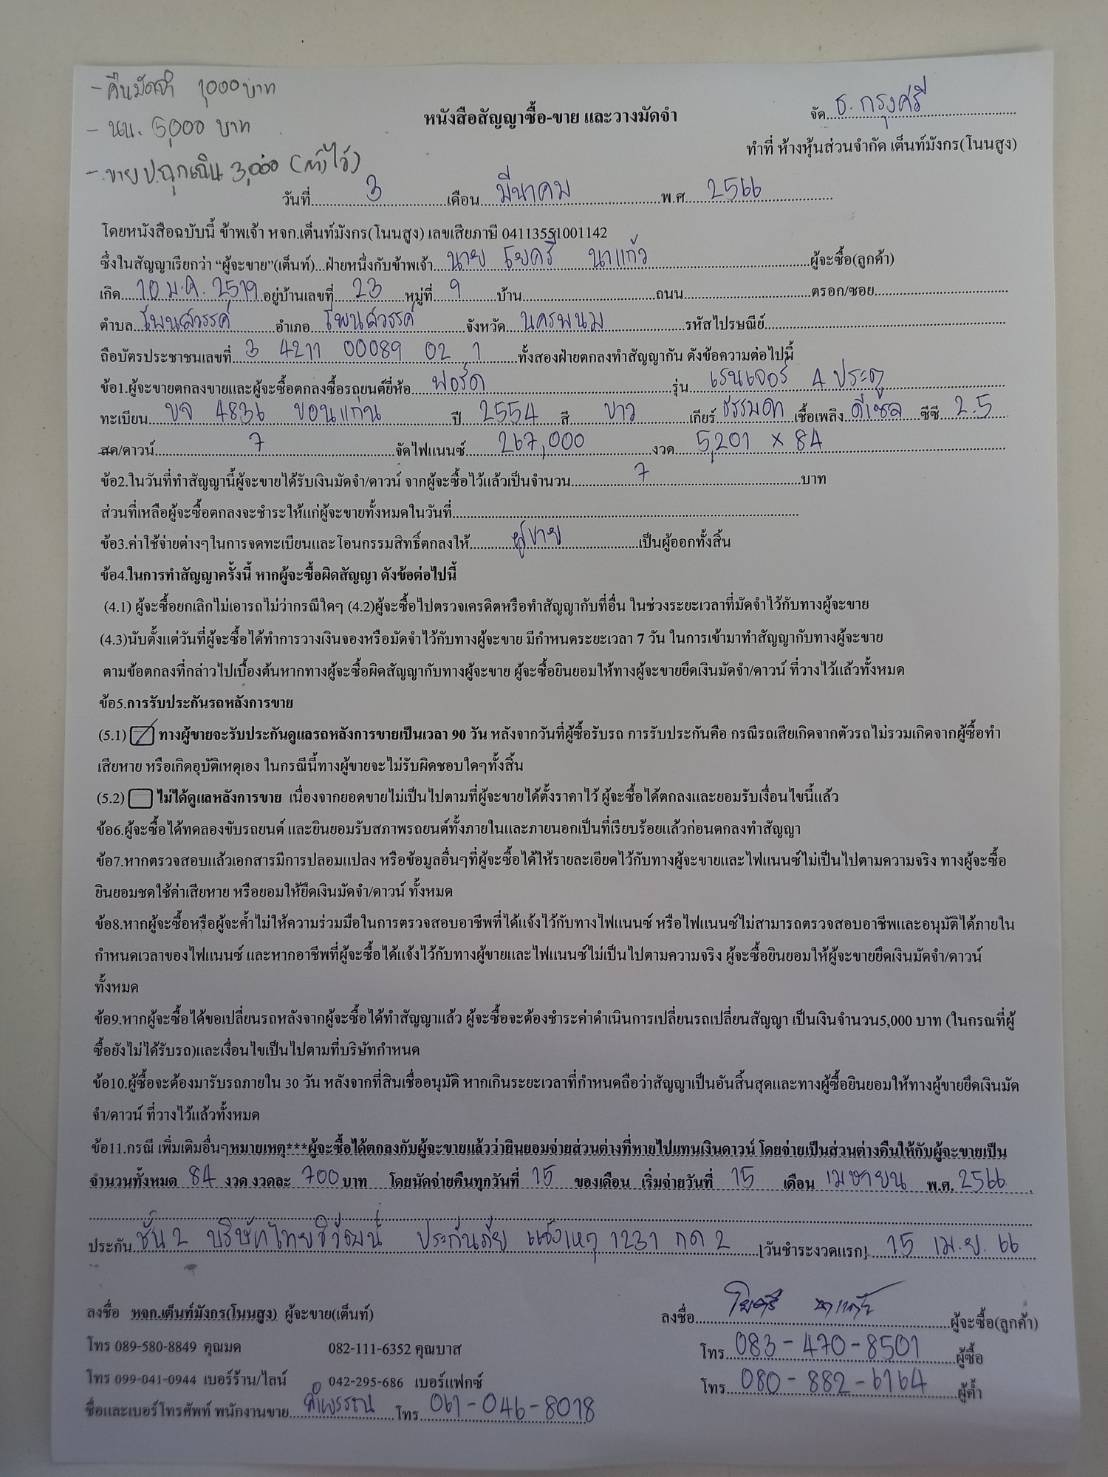 - คืนมัดจำ 1,000 บาท
- นน. 5,000 บาท
- ขาย ป.ฉุกเฉิน 3,000
จัด ธ. กรุงศรี
หนังสือสัญญาซื้อ-ขาย และวางมัดจำ
ทำที่ ห้างหุ้นส่วนจำกัด เต็นท์มังกร(โนนสูง)
วันที่ 3 เดือน มีนาคม พ.ศ. 2566
โดยหนังสือฉบับนี้ ข้าพเจ้า หจก.เต็นท์มังกร(โนนสูง) เลขเสียภาษี 04113551001142
ซึ่งในสัญญาเรียกว่า “ผู้จะขาย”(เต็นท์)...ฝ่ายหนึ่งกับข้าพเจ้า นาย โยศรี นาแก้ว ผู้จะซื้อ(ลูกค้า)
เกิด 10 ม.ค. 2519 อยู่บ้านเลขที่ 23 หมู่ที่ 9 บ้าน ถนน ตรอก/ซอย
ตำบล โพนสวรรค์ อำเภอ โพนสวรรค์ จังหวัด นครพนม รหัสไปรษณีย์
ถือบัตรประชาชนเลขที่ 3 4211 00089 02 1 ทั้งสองฝ่ายตกลงทำสัญญากัน ดังข้อความต่อไปนี้
ข้อ1.ผู้จะขายตกลงขายและผู้จะซื้อตกลงซื้อรถยนต์ยี่ห้อ ฟอร์ด รุ่น เรนเจอร์ 4 ประตู
ทะเบียน บจ 4836 ขอนแก่น ปี 2554 สี ขาว เกียร์ ธรรมดา เชื้อเพลิง ดีเซล ซีซี 2.5
สด/ดาวน์ 7 จัดไฟแนนซ์ 267,000 งวด 5,201 x 84
ข้อ2.ในวันที่ทำสัญญานี้ผู้จะขายได้รับเงินมัดจำ/ดาวน์ จากผู้จะซื้อไว้แล้วเป็นจำนวน 7 บาท
ส่วนที่เหลือผู้จะซื้อตกลงจะชำระให้แก่ผู้จะขายทั้งหมดในวันที่
ข้อ3.ค่าใช้จ่ายต่างๆในการจดทะเบียนและโอนกรรมสิทธิ์ตกลงให้ ผู้ขาย เป็นผู้ออกทั้งสิ้น
ข้อ4.ในการทำสัญญาครั้งนี้ หากผู้จะซื้อผิดสัญญา ดังข้อต่อไปนี้
(4.1) ผู้จะซื้อยกเลิกไม่เอารถไม่ว่ากรณีใดๆ (4.2)ผู้จะซื้อไปตรวจเครดิตหรือทำสัญญากับที่อื่น ในช่วงระยะเวลาที่มัดจำไว้กับทางผู้จะขาย
(4.3)นับตั้งแต่วันที่ผู้จะซื้อได้ทำการวางเงินจองหรือมัดจำไว้กับทางผู้จะขาย มีกำหนดระยะเวลา 7 วัน ในการเข้ามาทำสัญญากับทางผู้จะขาย
ตามข้อตกลงที่กล่าวไปเบื้องต้นหากทางผู้จะซื้อผิดสัญญากับทางผู้จะขาย ผู้จะซื้อยินยอมให้ทางผู้จะขายยึดเงินมัดจำ/ดาวน์ ที่วางไว้แล้วทั้งหมด
ข้อ5.การรับประกันรถหลังการขาย
(5.1) ทางผู้ขายจะรับประกันดูแลรถหลังการขายเป็นเวลา 90 วัน หลังจากวันที่ผู้ซื้อรับรถ การรับประกันคือ กรณีรถเสียเกิดจากตัวรถไม่รวมเกิดจากผู้ซื้อทำ
เสียหาย หรือเกิดอุบัติเหตุเอง ในกรณีนี้ทางผู้ขายจะไม่รับผิดชอบใดๆทั้งสิ้น
(5.2) ไม่ได้ดูแลหลังการขาย เนื่องจากยอดขายไม่เป็นไปตามที่ผู้จะขายได้ตั้งราคาไว้ ผู้จะซื้อได้ตกลงและยอมรับเงื่อนไขนี้แล้ว
ข้อ6.ผู้จะซื้อได้ทดลองขับรถยนต์ และยินยอมรับสภาพรถยนต์ทั้งภายในและภายนอกเป็นที่เรียบร้อยแล้วก่อนตกลงทำสัญญา
ข้อ7.หากตรวจสอบแล้วเอกสารมีการปลอมแปลง หรือข้อมูลอื่นๆที่ผู้จะซื้อได้ให้รายละเอียดไว้กับทางผู้จะขายและไฟแนนซ์ไม่เป็นไปตามความจริง ทางผู้จะซื้อ
ยินยอมชดใช้ค่าเสียหาย หรือยอมให้ยึดเงินมัดจำ/ดาวน์ ทั้งหมด
ข้อ8.หากผู้จะซื้อหรือผู้จะค้ำไม่ให้ความร่วมมือในการตรวจสอบอาชีพที่ได้แจ้งไว้กับทางไฟแนนซ์ หรือไฟแนนซ์ไม่สามารถตรวจสอบอาชีพและอนุมัติได้ภายใน
กำหนดเวลาของไฟแนนซ์ และหากอาชีพที่ผู้จะซื้อได้แจ้งไว้กับทางผู้ขายและไฟแนนซ์ไม่เป็นไปตามความจริง ผู้จะซื้อยินยอมให้ผู้จะขายยึดเงินมัดจำ/ดาวน์
ทั้งหมด
ข้อ9.หากผู้จะซื้อได้ขอเปลี่ยนรถหลังจากผู้จะซื้อได้ทำสัญญาแล้ว ผู้จะซื้อจะต้องชำระค่าดำเนินการเปลี่ยนรถเปลี่ยนสัญญา เป็นเงินจำนวน5,000 บาท (ในกรณที่ผู้
ซื้อยังไม่ได้รับรถ)และเงื่อนไขเป็นไปตามที่บริษัทกำหนด
ข้อ10.ผู้ซื้อจะต้องมารับรถภายใน 30 วัน หลังจากที่สินเชื่ออนุมัติ หากเกินระยะเวลาที่กำหนดถือว่าสัญญาเป็นอันสิ้นสุดและทางผู้ซื้อยินยอมให้ทางผู้ขายยึดเงินมัด
จำ/ดาวน์ ที่วางไว้แล้วทั้งหมด
ข้อ11.กรณี เพิ่มเติมอื่นๆหมายเหตุ***ผู้จะซื้อได้ตกลงกับผู้จะขายแล้วว่ายินยอมจ่ายส่วนต่างที่หายไปแทนเงินดาวน์ โดยจ่ายเป็นส่วนต่างคืนให้กับผู้จะขายเป็น
จำนวนทั้งหมด 84 งวด งวดละ 700 บาท โดยนัดจ่ายคืนทุกวันที่ 15 ของเดือน เริ่มจ่ายวันที่ 15 เดือน เมษายน พ.ศ. 2566
ประกัน ชั้น 2 บริษัทไทยวิวัฒน์ ประกันภัย แจ้งเหตุ 1231 กด 2 [วันชำระงวดแรก] 15 เม.ย. 66
ลงชื่อ หจก.เต็นท์มังกร(โนนสูง) ผู้จะขาย(เต็นท์)
ลงชื่อ โยศรี นาแก้ว ผู้จะซื้อ(ลูกค้า)
โทร 089-580-8849 คุณมด 082-111-6352 คุณบาส
โทร 083-470-8501 ผู้ซื้อ
โทร 099-041-0944 เบอร์ร้าน/ไลน์ 042-295-686 เบอร์แฟกซ์
โทร 080-882-6764 ผู้ค้ำ
ชื่อและเบอร์โทรศัพท์ พนักงานขาย โทร 061-046-8078